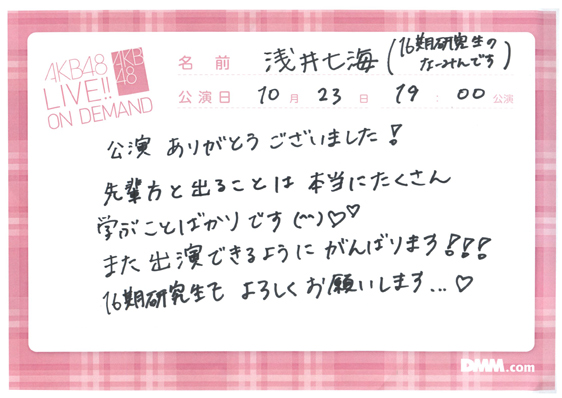 AKB48
LIVE!!
ON DEMAND
AKB
48
名前 浅井七海 (16期研究生の
なーみんです)
公演日 10月23日 19:00公演
公演 ありがとうございました!
先輩方と出ることは 本当にたくさん
学ぶことばかりです (^^)♡♡
また 出演できるように がんばります!!!
16期研究生で よろしくお願いします...♡
DMM.com